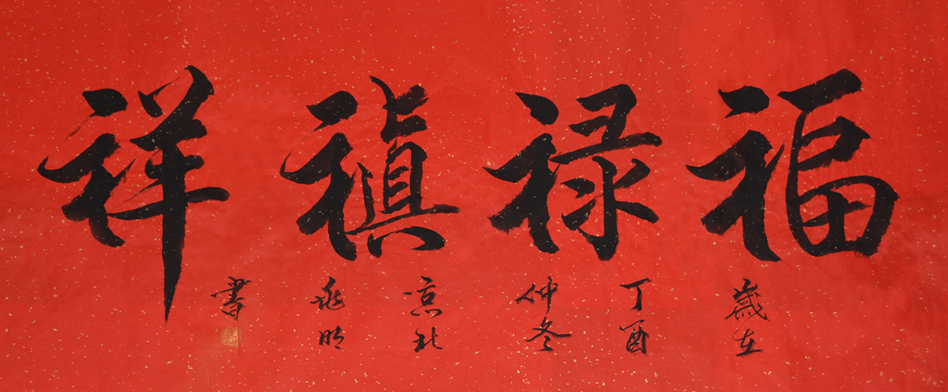 福禄禛祥
歲在
丁酉
仲冬
京北
兆明
書